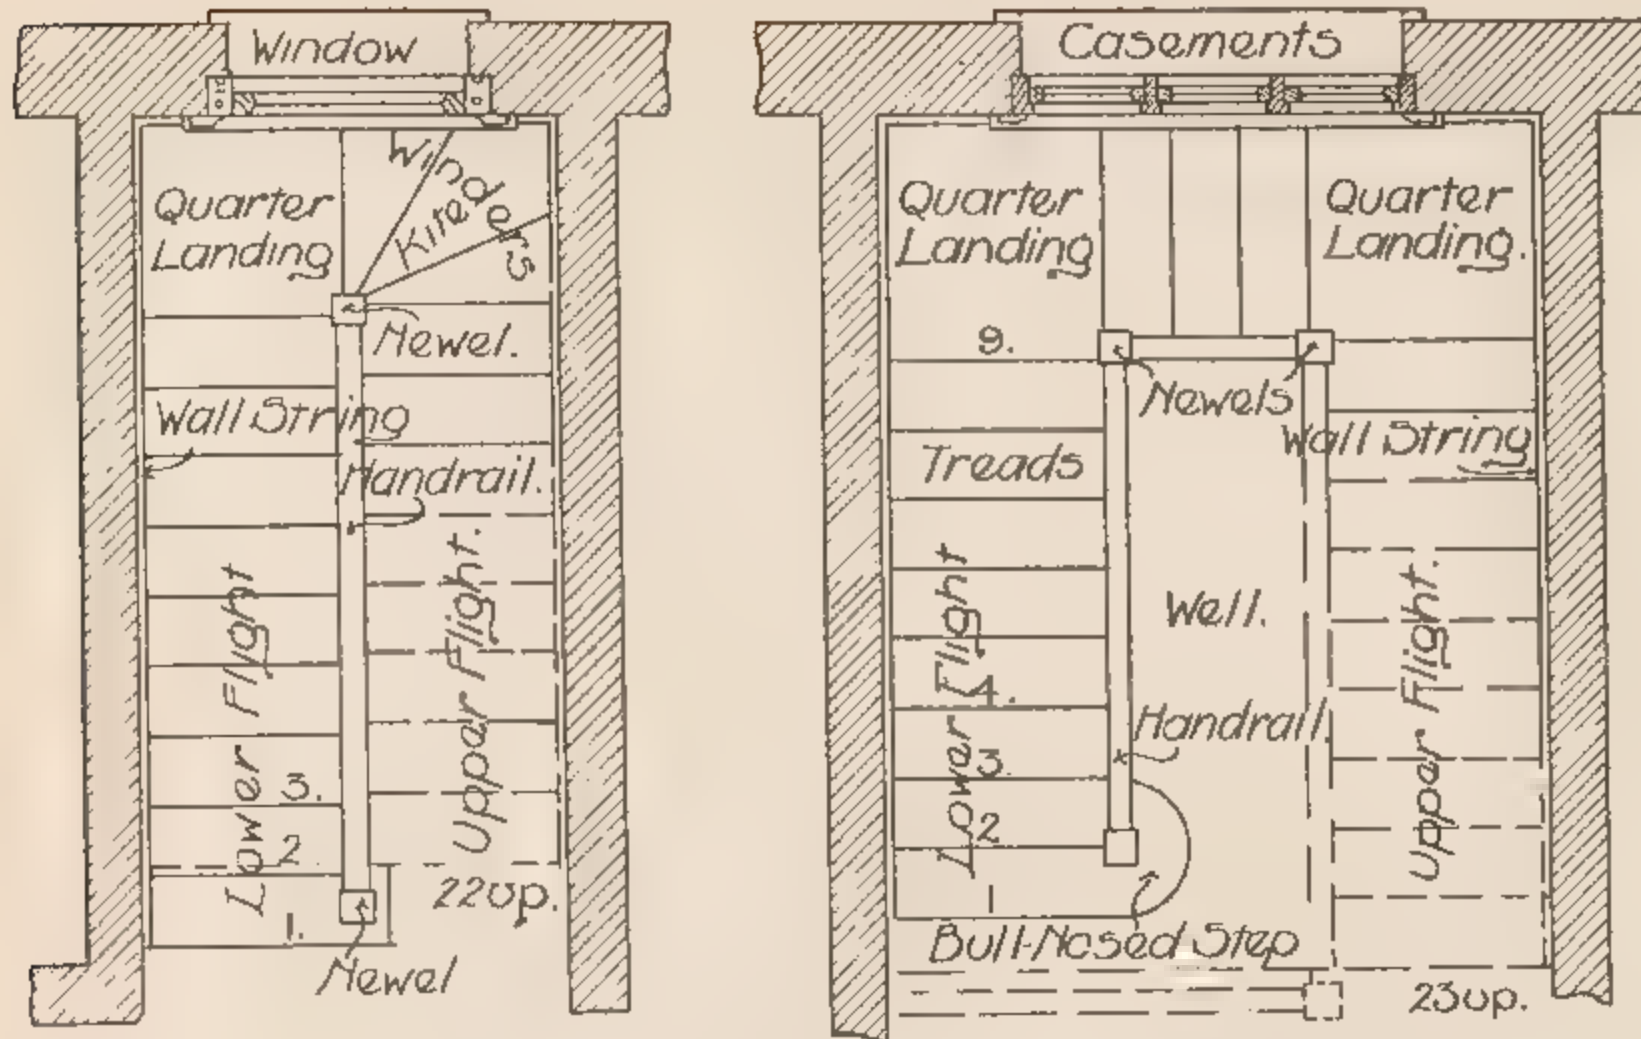 Window
Winders
Kite
Quarter
Landing
Newel.
Wall String
Handrail.
Lower Flight
Upper Flight.
3.
2
1.
22 up.
Newel
Casements
Quarter
Landing
Quarter
Landing.
9.
Newels
Wall String
Treads
Well.
Lower Flight
Upper Flight.
4.
Handrail.
3.
2
1
Bull-Nosed Step
23 up.